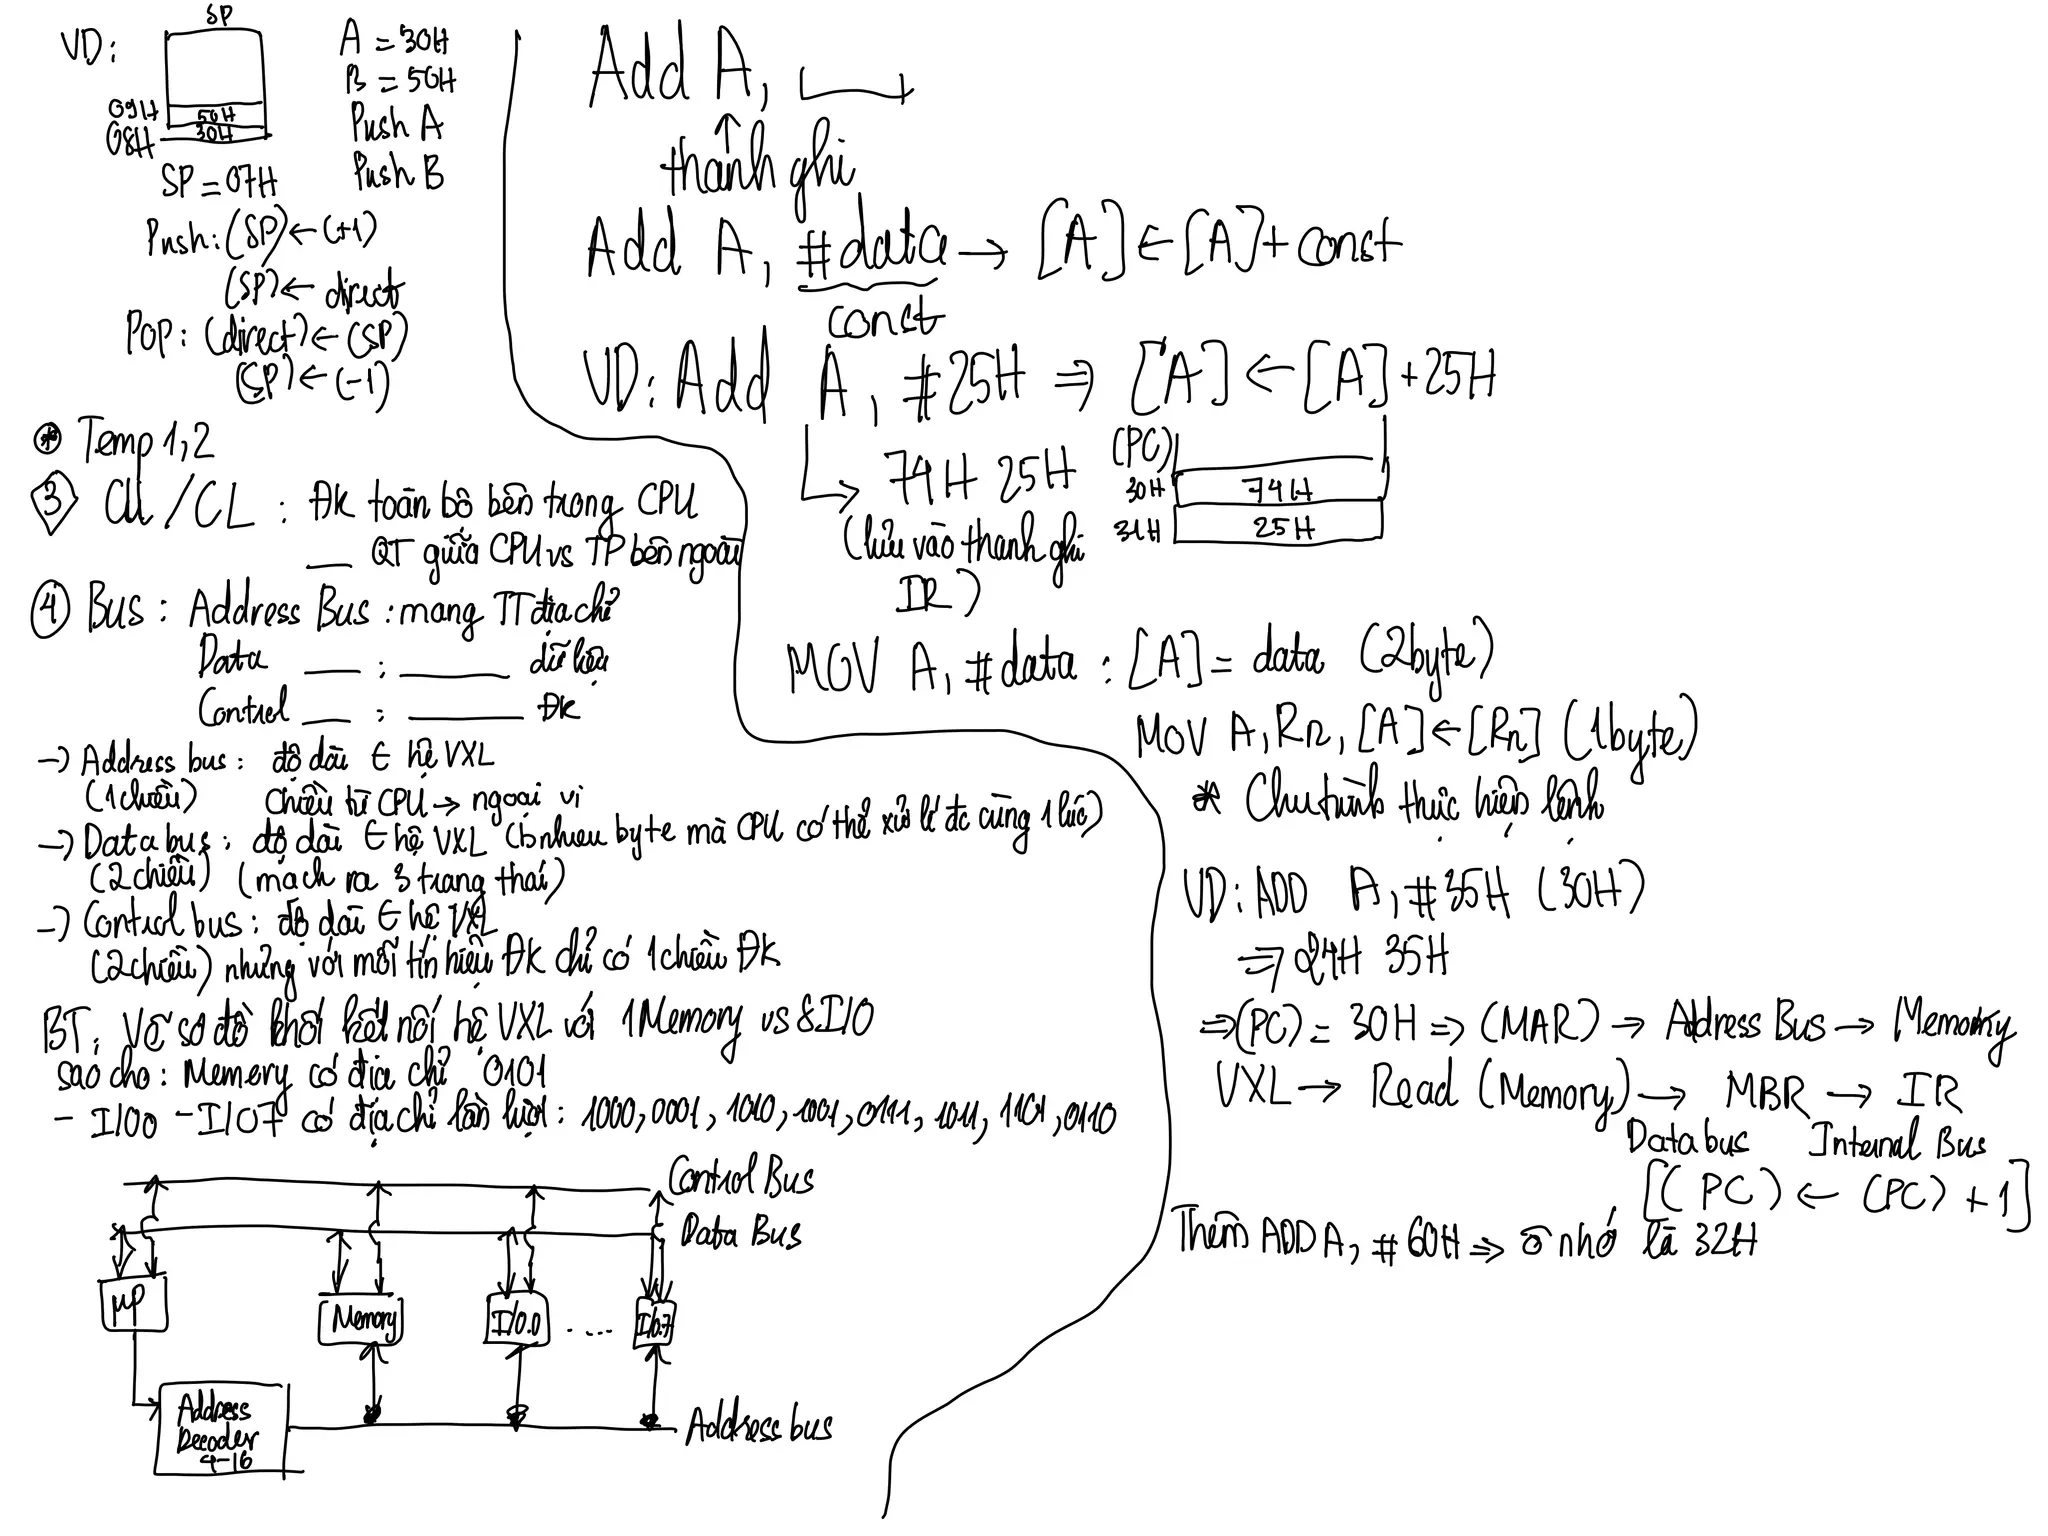 VD:
SP
09H 50H
08H 30H
SP = 07H
A = 30H
B = 50H
Push A
Push B
Push: (SP) ← (+1)
(SP) ← direct
POP: (direct) ← (SP)
(SP) ← (-1)
* Temp 1,2
3 CU/CL : ĐK toàn bộ bên trong CPU
__ QT giữa CPU vs TP bên ngoài
4 Bus : Address Bus : mang TT địa chỉ
Data ___ : _____ dữ liệu
Control ___ : _____ ĐK
→ Address bus : độ dài ∈ hệ VXL
(1 chiều) chiều từ CPU → ngoại vi
→ Data bus : độ dài ∈ hệ VXL (bnhieu byte mà CPU có thể xử lí đc cùng 1 lúc)
(2 chiều) (mạch ra 3 trạng thái)
→ Control bus : độ dài ∈ hệ VXL
(2 chiều) nhưng với mỗi tín hiệu ĐK chỉ có 1 chiều ĐK
BT: Vẽ sơ đồ khối kết nối hệ VXL với 1 Memory vs 8 I/O
sao cho : Memory có địa chỉ 0101
- I/O0 - I/O7 có địa chỉ lần lượt : 1000, 0001, 1010, 1001, 0111, 1011, 1101, 0110
Control Bus
Data Bus
μP
Memory
I/O.0
....
I/O.7
Address
Decoder
4-16
Address bus
Add A,
thanh ghi
Add A, #data → [A] ← [A] + const
const
VD: Add A, #25H ⇒ [A] ← [A] + 25H
74H 25H
(lưu vào thanh ghi
IR)
(PC)
30H 74H
31H 25H
MOV A, #data : [A] = data (2byte)
MOV A, Rn, [A] ← [Rn] (1byte)
* Chu trình thực hiện lệnh
VD: ADD A, #35H (30H)
⇒ 24H 35H
⇒ (PC) = 30H ⇒ (MAR) → Address Bus → Memory
VXL → Read (Memory) → MBR → IR
Data bus Internal Bus
[(PC) ← (PC) + 1]
Thêm ADD A, #60H ⇒ ô nhớ là 32H